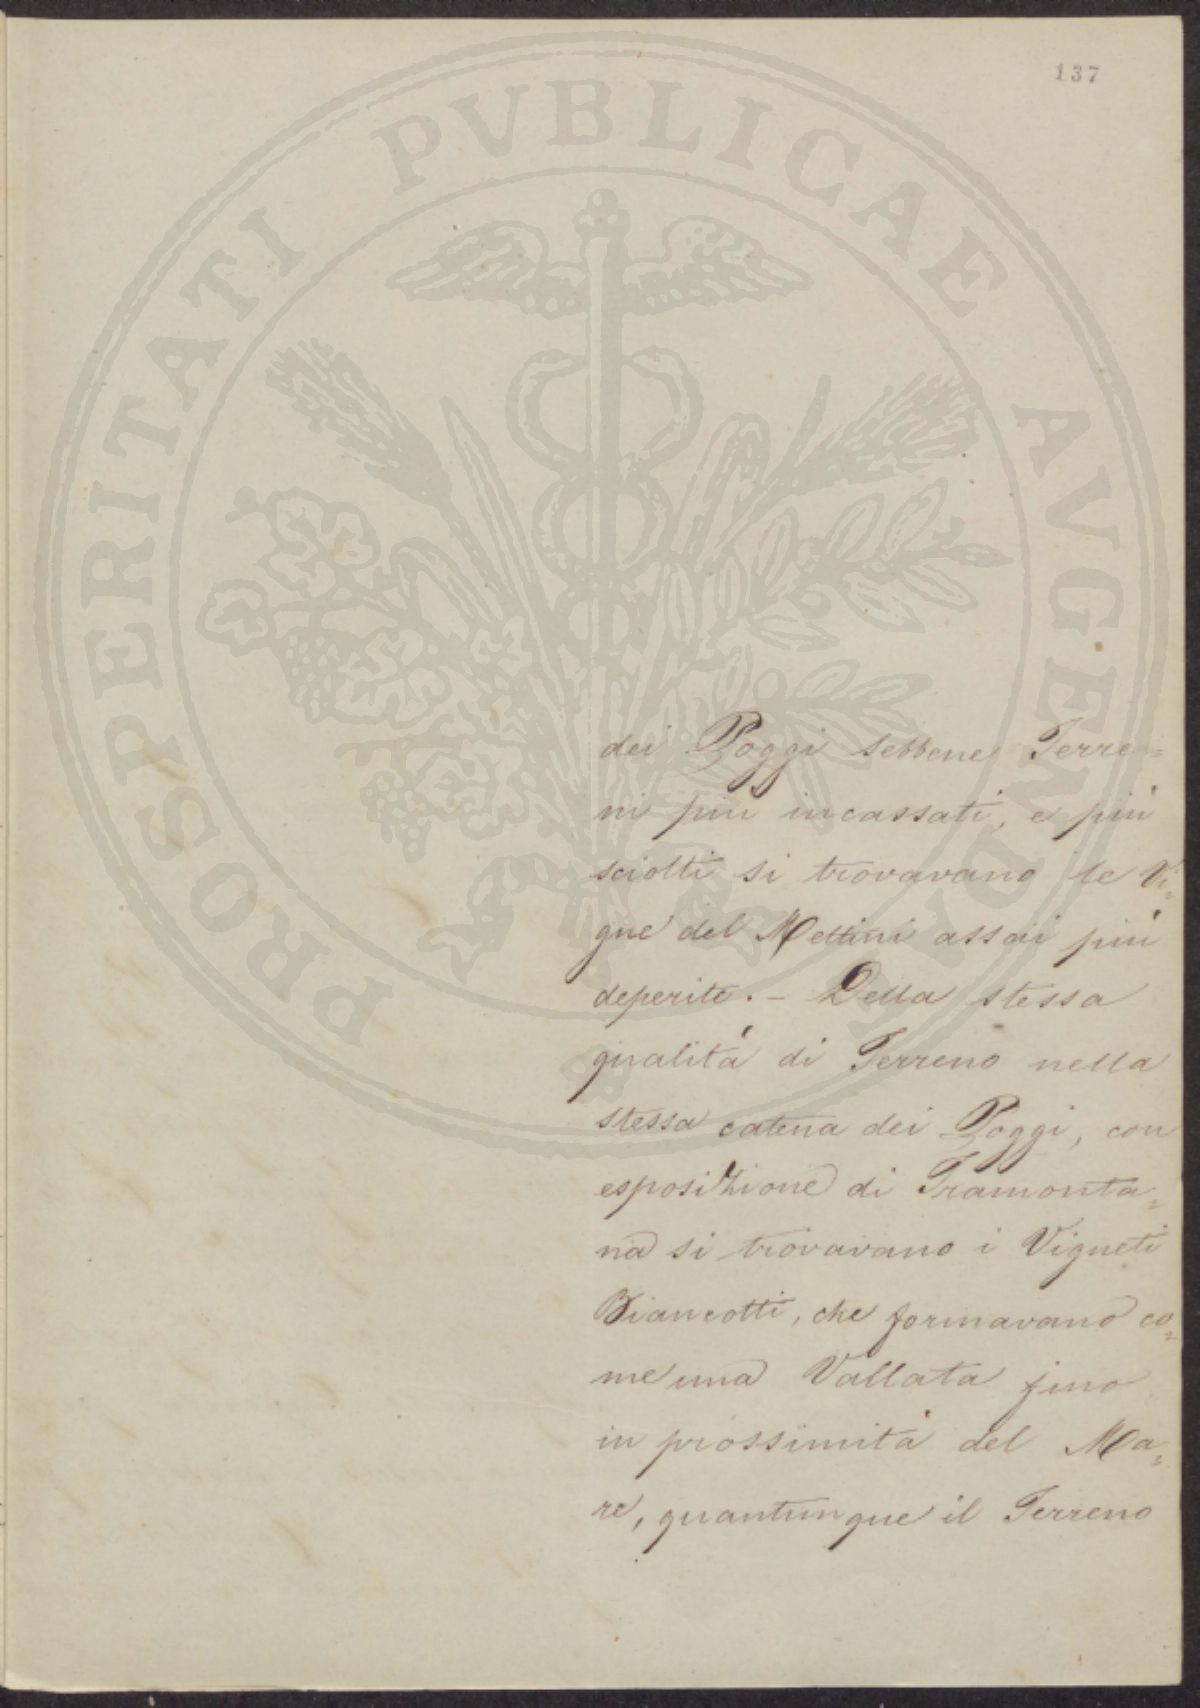 137
PROSPERITATI PVBLICAE AVGENDAE
dei Poggi sebbene Terre=
ni più incassati, e più
sciolti si trovavano le Vi=
gne del Mettini assai più
deperite. - Della stessa
qualità di Terreno nella
stessa catena dei Poggi, con
esposizione di Tramonta=
na si trovavano i Vigneti
Biancotti, che formavano co=
me una Vallata fino
in prossimità del Ma=
re, quantunque il Terreno